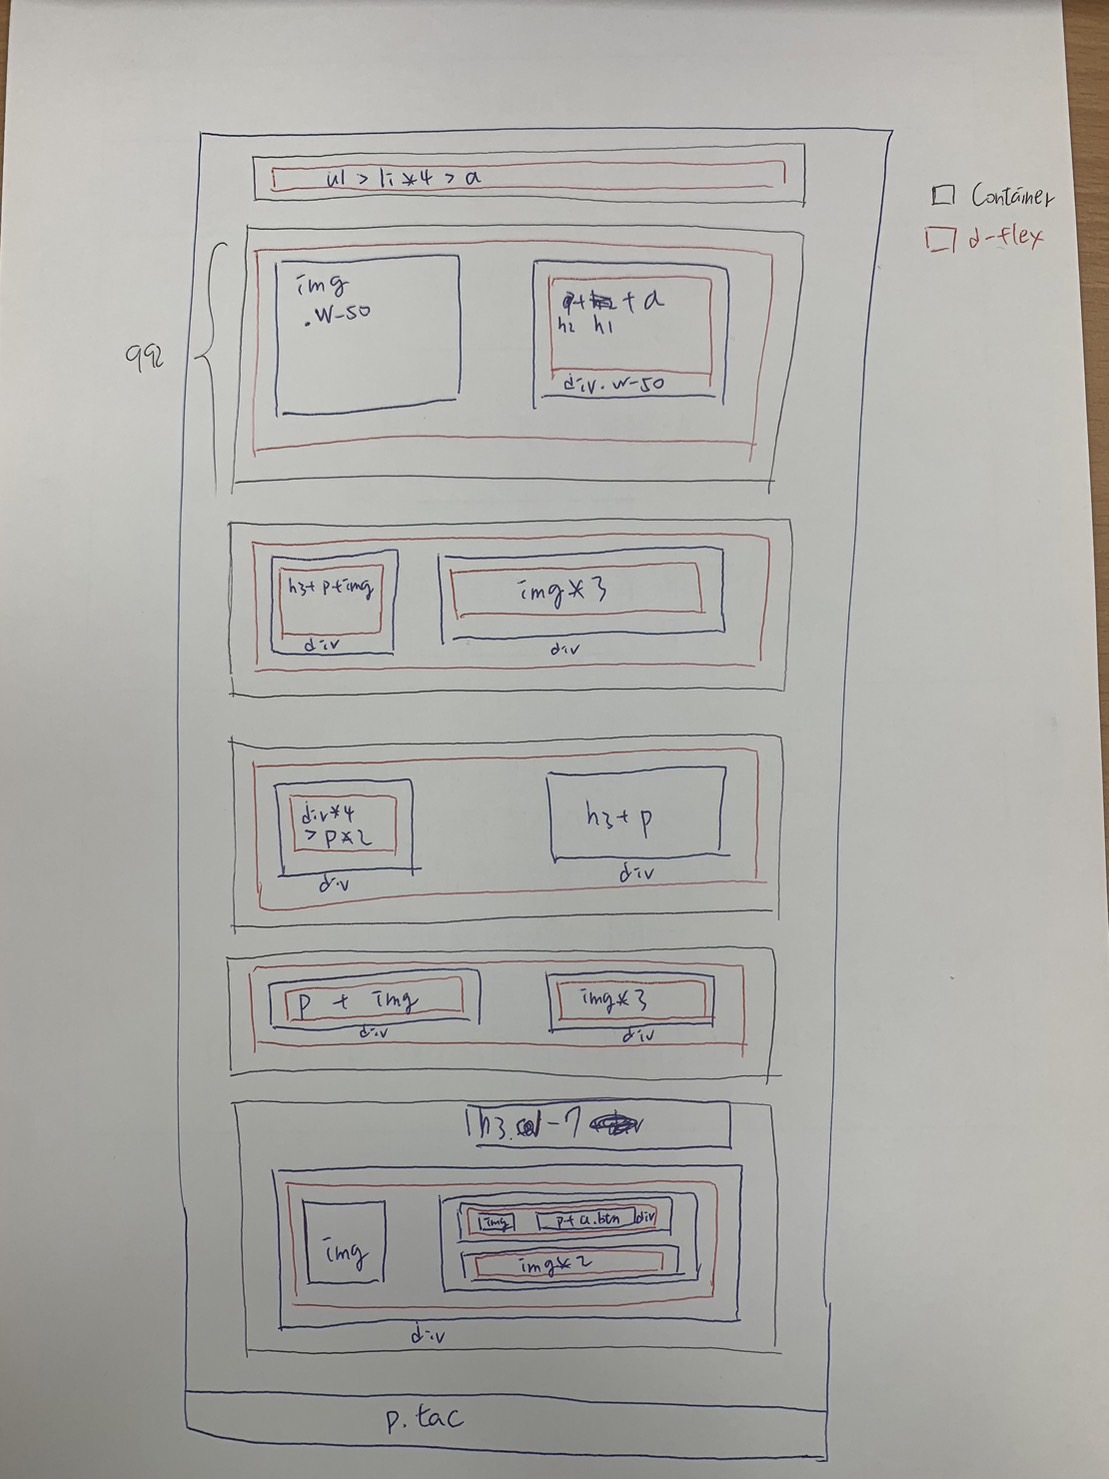 ul > li *4 > a
Container
d-flex
img
.w-50
+ a
h2 h1
div.w-50
992
h3+ p+img
div
img*3
div
div*4
> p*2
div
h3+ p
div
p + img
div
img*3
div
h3.col-7
img
img
p+ a.btn
div
img*2
div
p.tac